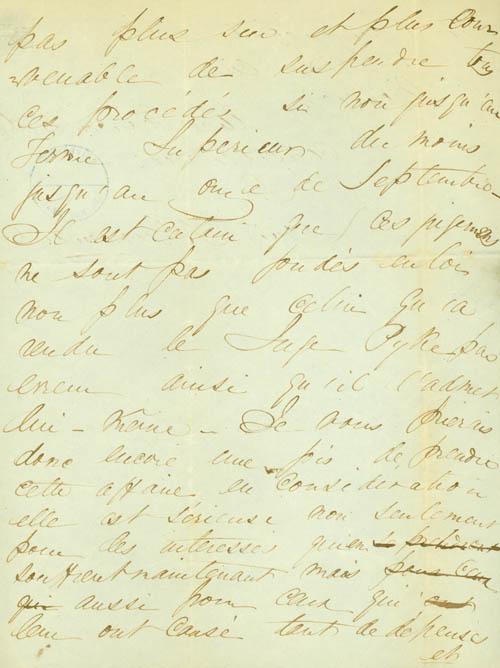 pas plus sur et plus con-
venable de suspendre tous
ces procédés si non jusqu'au
Terme Supérieur du moins
jusqu'au onze de Septembre
Il est certain que ces jugemens
ne sont pas fondés en loi
non plus que celui qu'a
rendu le Juge Pyke par
erreur ainsi qu'il l'admet
lui-même - Je vous prierais
donc encore une fois de prendre
cette affaire en Consideration
elle est sérieuse non seulement
pour les interessés qui en
souffrent maintenant mais pour ceux
qui aussi pour ceux qui
leur ont causé tant de dépenses
et